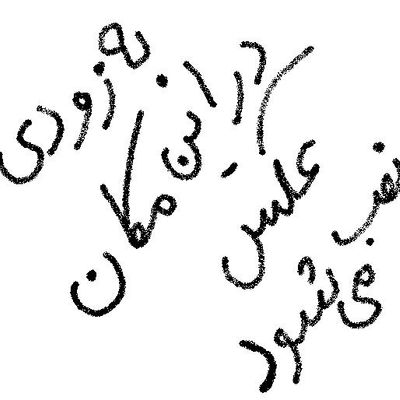 به زودی
در این مکان
عکس نصب
می شود